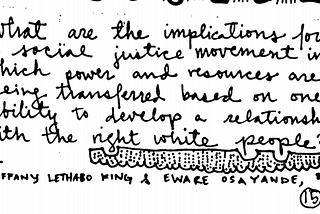 what are the implications for
social justice movement in
hich power and resources are
eing transferred based on one
bility to develop a relationsh
ith the right white people?
FFANY LETHABO KING & EWARE OSAYANDE,
15